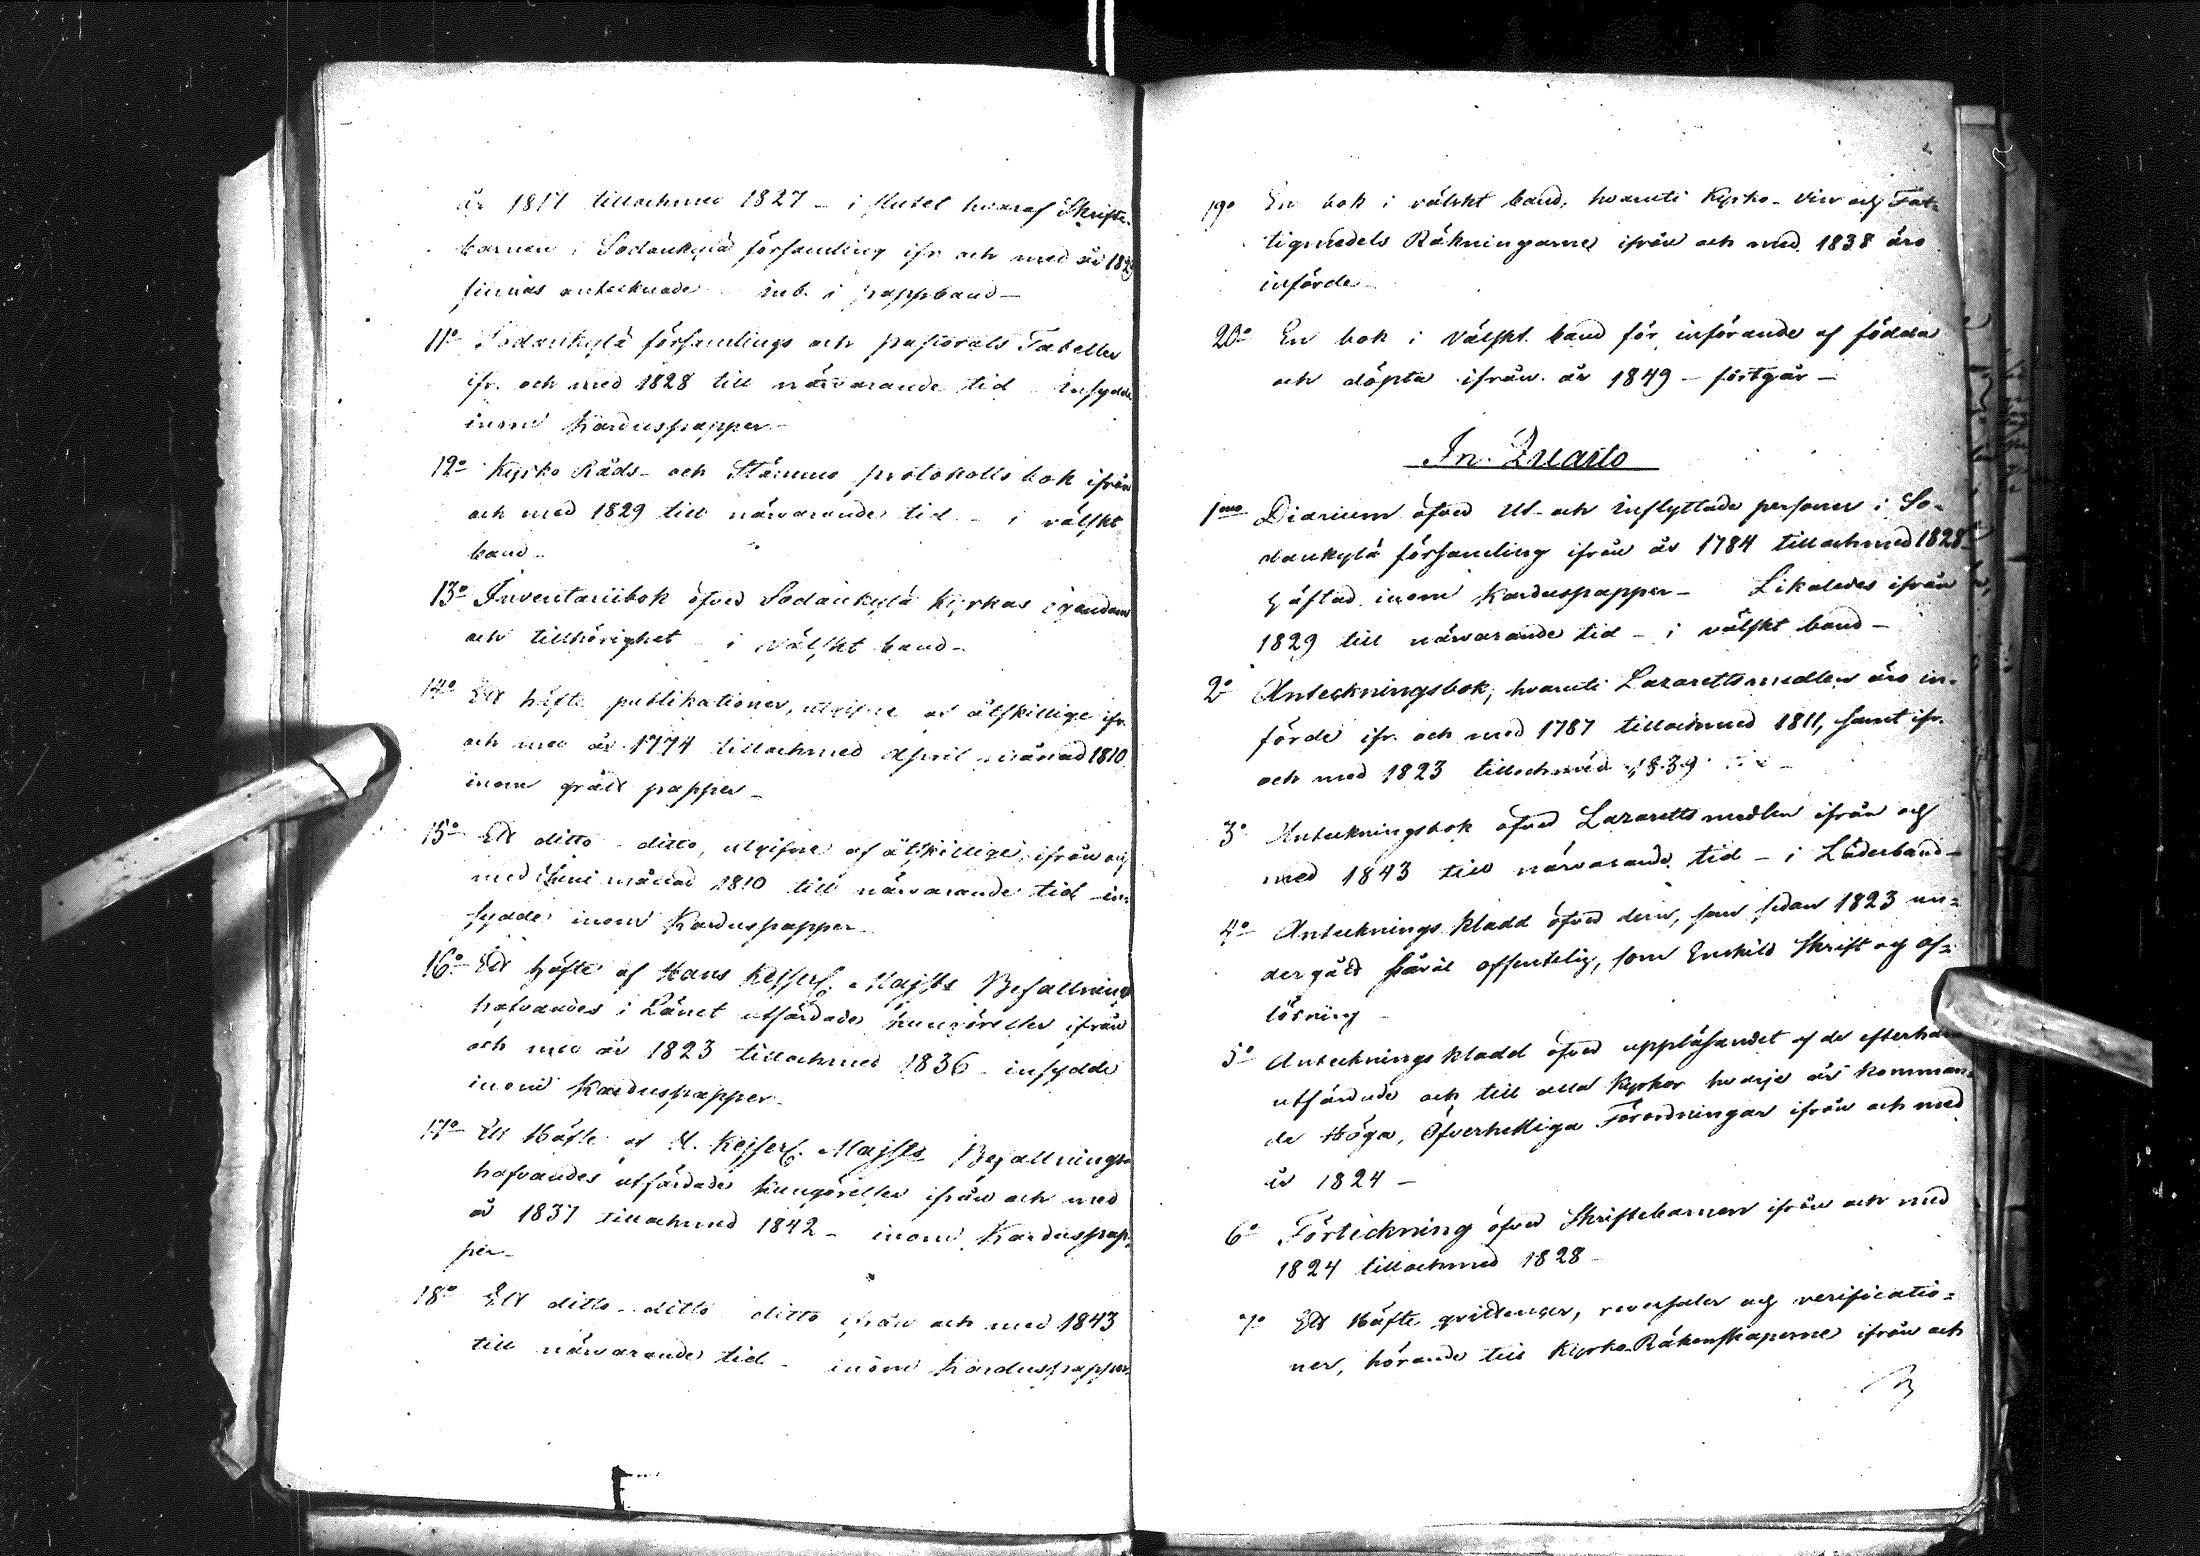 år 1817 tillochmed 1827 – i slutet hvaraf Skrifte-
barnen i Sodankylä församling ifr. och med år 182
finnas antecknade inb. i pappband –
11° Sodankylä församlings och pastorats Tabeller
ifr. och med 1828 till närvarande tid insydde
inom Karduspapper –
12° Kyrko Råds- och Stämmo protokolls bok ifrån
och med 1829 till närvarande tid – i välskt
band –
13° Inventariibok öfver Sodankylä Kyrkas egendom
och tillhörighet – i välskt band –
14° Ett häfte publikationer, utgifne af åtskillige ifr.
och med år 1774 tillochmed April månad 1810
inom grått papper –
15° Ett ditto ditto, utgifne af åtskillige, ifrån och
med Juni månad 1810 till närvarande tid – in-
sydde inom Karduspapper –
16° Ett häfte af Hans Kejserl. Majsts Befallnings
hafvandes i Länet utfärdade kungörelser ifrån
och med år 1823 tillochmed 1836 – insydde
inom Karduspapper –
17° Ett Häfte af H. Kejserl. Majsts Befallnings-
hafvandes utfärdade kungörelser ifrån och med
år 1837 tillochmed 1842 – inom Karduspap-
per –
18° Ett ditto ditto ditto ifrån och med 1843
till närvarande tid – inom Karduspapper
19° En bok i välskt band, hvaruti Kyrko- Vin och Fat-
tigmedels Räkningarne ifrån och med 1838 äro
införde –
20° En bok i välskt band för införande af födda
och döpta ifrån år 1849 – fortgår –
In Quarto
1mo Diarium öfver Ut- och Inflyttade personer i So-
dankylä församling ifrån år 1784 tillochmed 1828
häftad inom Karduspapper – Likaledes ifrån
1829 till närvarande tid – i välskt band –
2° Anteckningsbok, hvaruti Lazarettsmedlen äro in-
förde ifr. och med 1787 tillochmed 1811, samt ifr.
och med 1823 tillochmed 1839
3° Anteckningsbok öfver Lazaretts medlen ifrån och
med 1843 till närvarande tid – i Läderband –
4° Antecknings kladd öfver dem, som sedan 1823 un-
dergått såväl offentelig, som Enskild Skrift och af-
lösning –
5° Antecknings kladd öfver uppläsandet af de efterhand
utfärdade och till alla Kyrkor hvarje år komman-
de Höga, Öfverhetliga Förordningar ifrån och med
år 1824 –
6° Förteckning öfver Skriftebarnen ifrån och med
1824 tillochmed 1828 –
7° Ett Häfte quittencer, reversaler och verificatio-
ner, hörande till Kyrko Räkenskaperne ifrån och